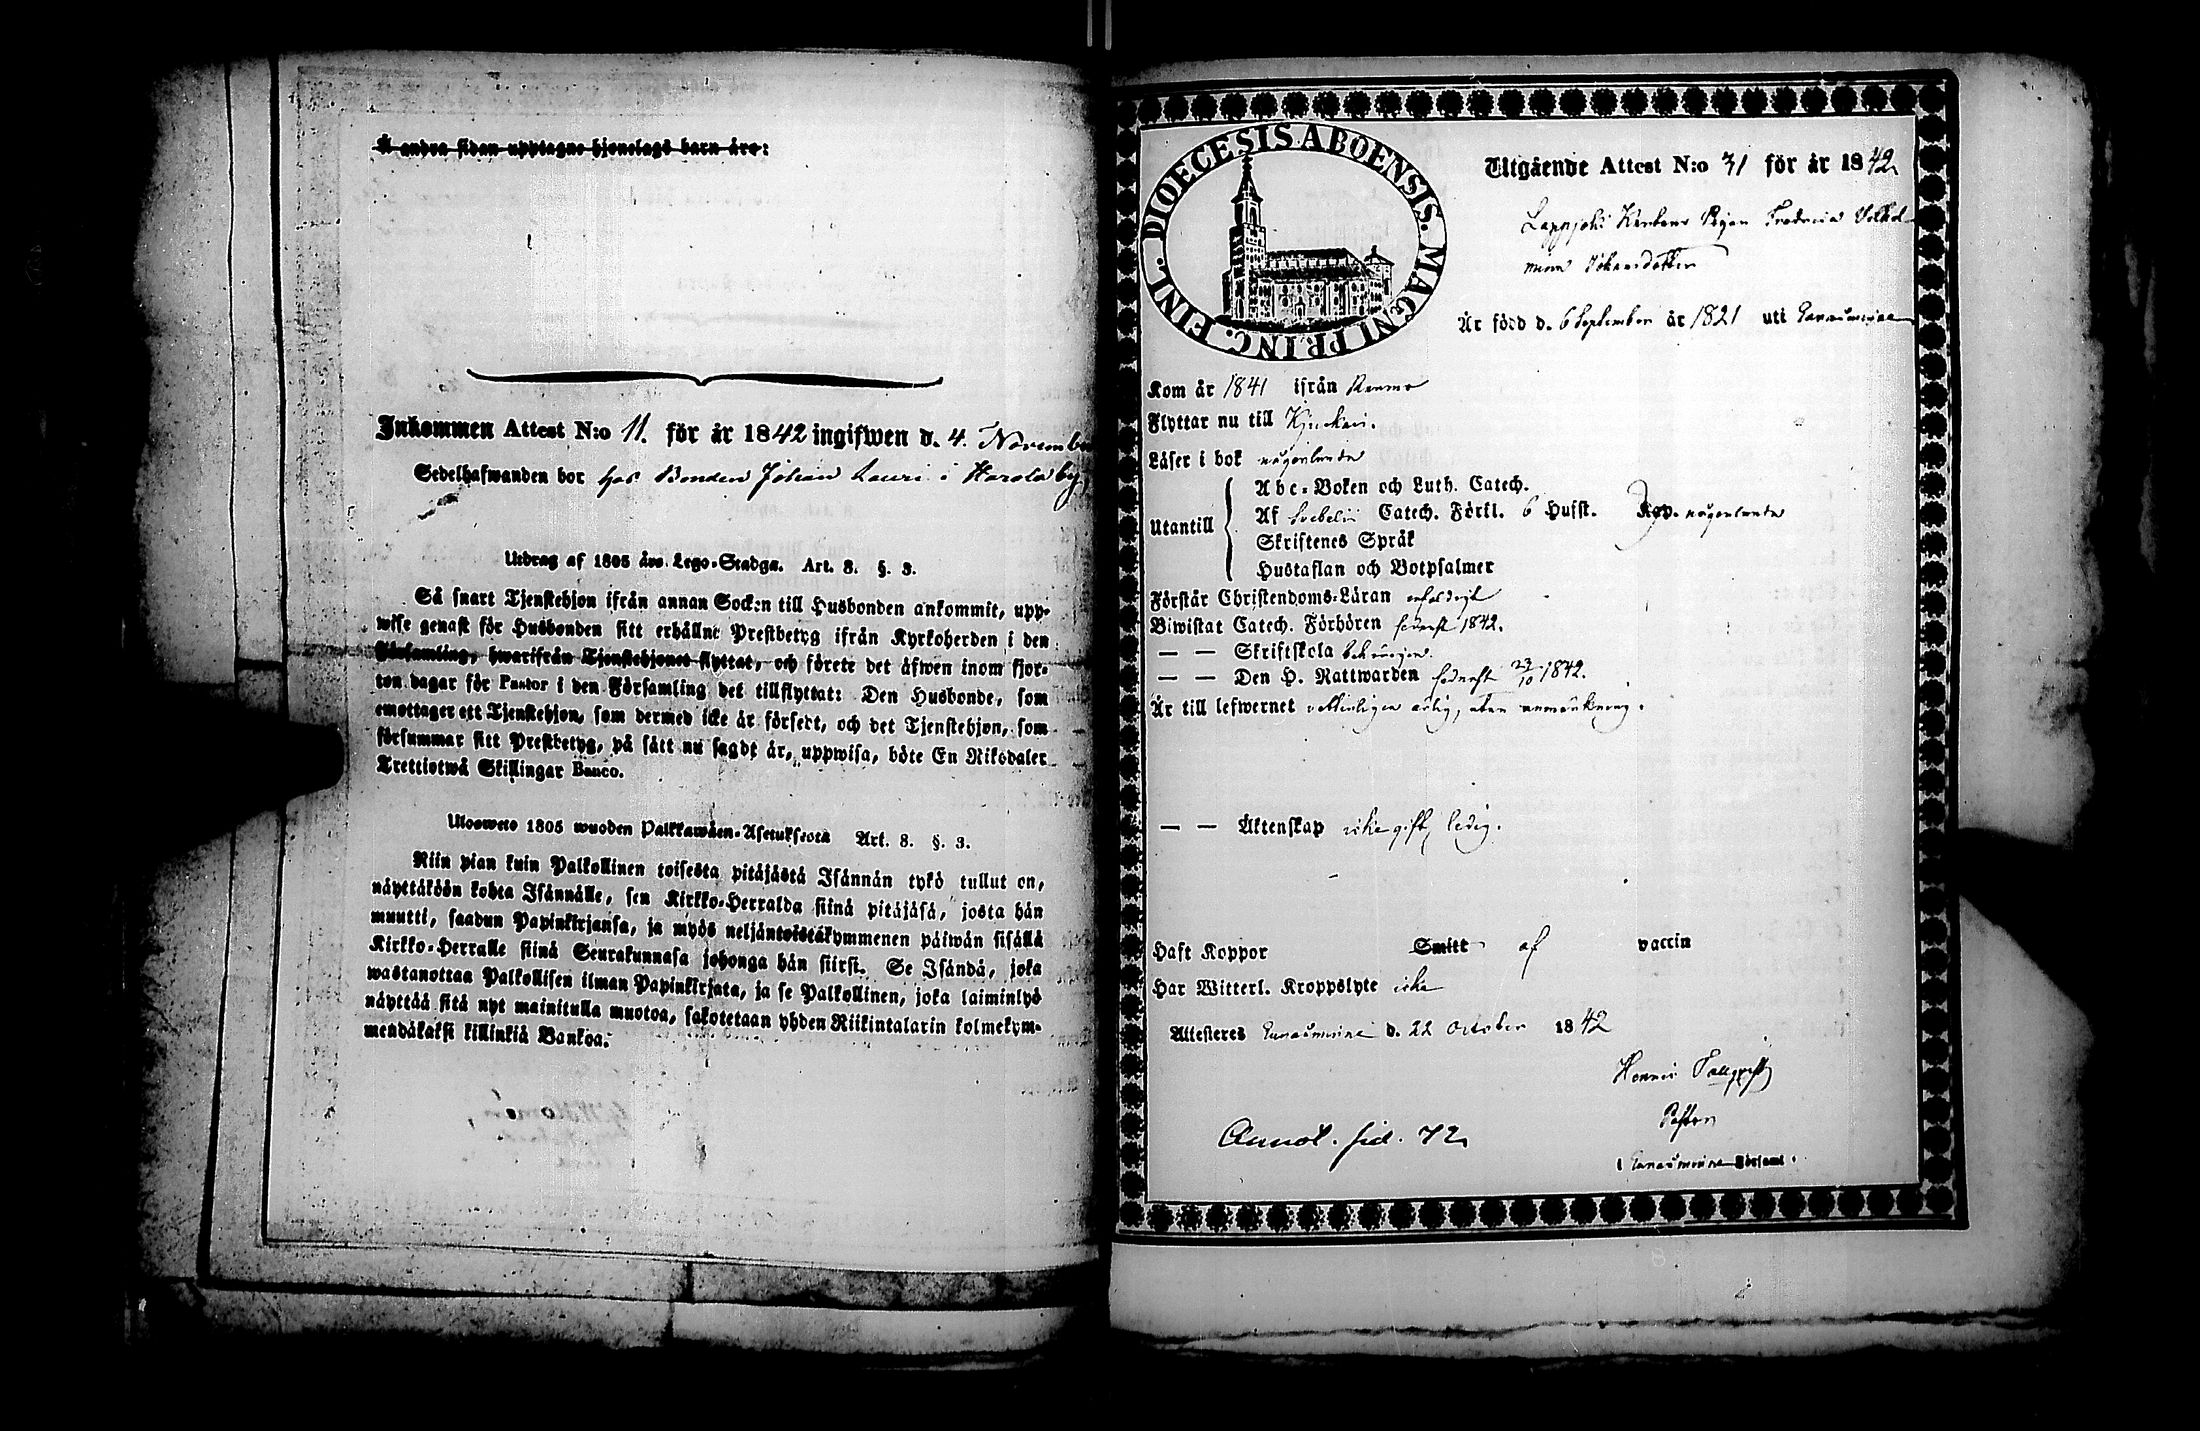 Å andra sidan upptagne hjonelags barn äro:
Inkommen Attest N:o 11. för år 1842 ingifwen d. 4. November
Sedelhafwanden bor hos Bonden Johan Lauri i Harola by
Utdrag af 1805 års Lego-Stadga. Art. 8. §. 3.
Så snart Tjenstehjon ifrån annan Socken till Husbonden ankommit, upp-
wise genast för Husbonden sitt erhållne Prestbetyg ifrån Kyrkoherden i den
Församling, hwarifrån Tjenstehjonet flyttat, och förete det äfwen inom fjor-
ton dagar för Pastor i den Församling det tillflyttat: Den Husbonde, som
emottager ett Tjenstehjon, som dermed icke är försedt, och det Tjenstehjon, som
försummar sitt Prestbetyg, på sätt nu sagdt är, uppwisa, böte En Riksdaler
Trettiotwå Skillingar Banco.
Ulosweto 1805 wuoden Palkkawäen-Asetuksesta Art. 8. §. 3.
Niin pian kuin Palkollinen toisesta pitäjästä Isännän tykö tullut on,
näyttäköön kohta Isännälle, sen Kirkko-Herralda siinä pitäjäsä, josta hän
muutti, saadun Papinkirjansa, ja myös neljäntoistakymmenen päiwän sisällä
Kirkko-Herralle siinä Seurakunnasa johonga hän siirsi. Se Isändä, joka
wastanottaa Palkollisen ilman Papinkirjata, ja se Palkollinen, joka laiminlyö
näyttää sitä nyt mainitulla muotoa, sakotetaan yhden Riikintalarin kolmekym-
mendäkaksi killinkiä Bankoa.
DIOECESIS. ABOENSIS. MAGNI PRINC. FINL.
Utgående Attest N:o 31 för år 1842
Lappjoki Pigan Fredrica Vilhel-
mina Johansdotter
Är född d. 6 September år 1821 uti Euraåminne
Kom år 1841 ifrån Raumo
Flyttar nu till Kjuckais.
Läser i bok någorlunda
Utantill
Abc-Boken och Luth. Catech.
Af Svebelii Catech. Förkl. 6 Hufst. någorlunda
Skriftenes Språk
Hustaflan och Botpsalmer
Förstår Christendoms-Läran
Biwistat Catech. Förhören sednast 1842.
— — Skriftskola behörigen.
— — Den H. Nattwarden sednast 23/10 1842.
Är till lefwernet ärlig, utan anmärkning.
— — Äktenskap icke gift, ledig.
Haft Koppor Smitt af vaccin
Har Witterl. Kroppslyte icke
Attesteres Euraåminne d. 22 October 1842
Henric Fallqvist
Pastor
i Euraåminne Församl.
Annot. sid. 72